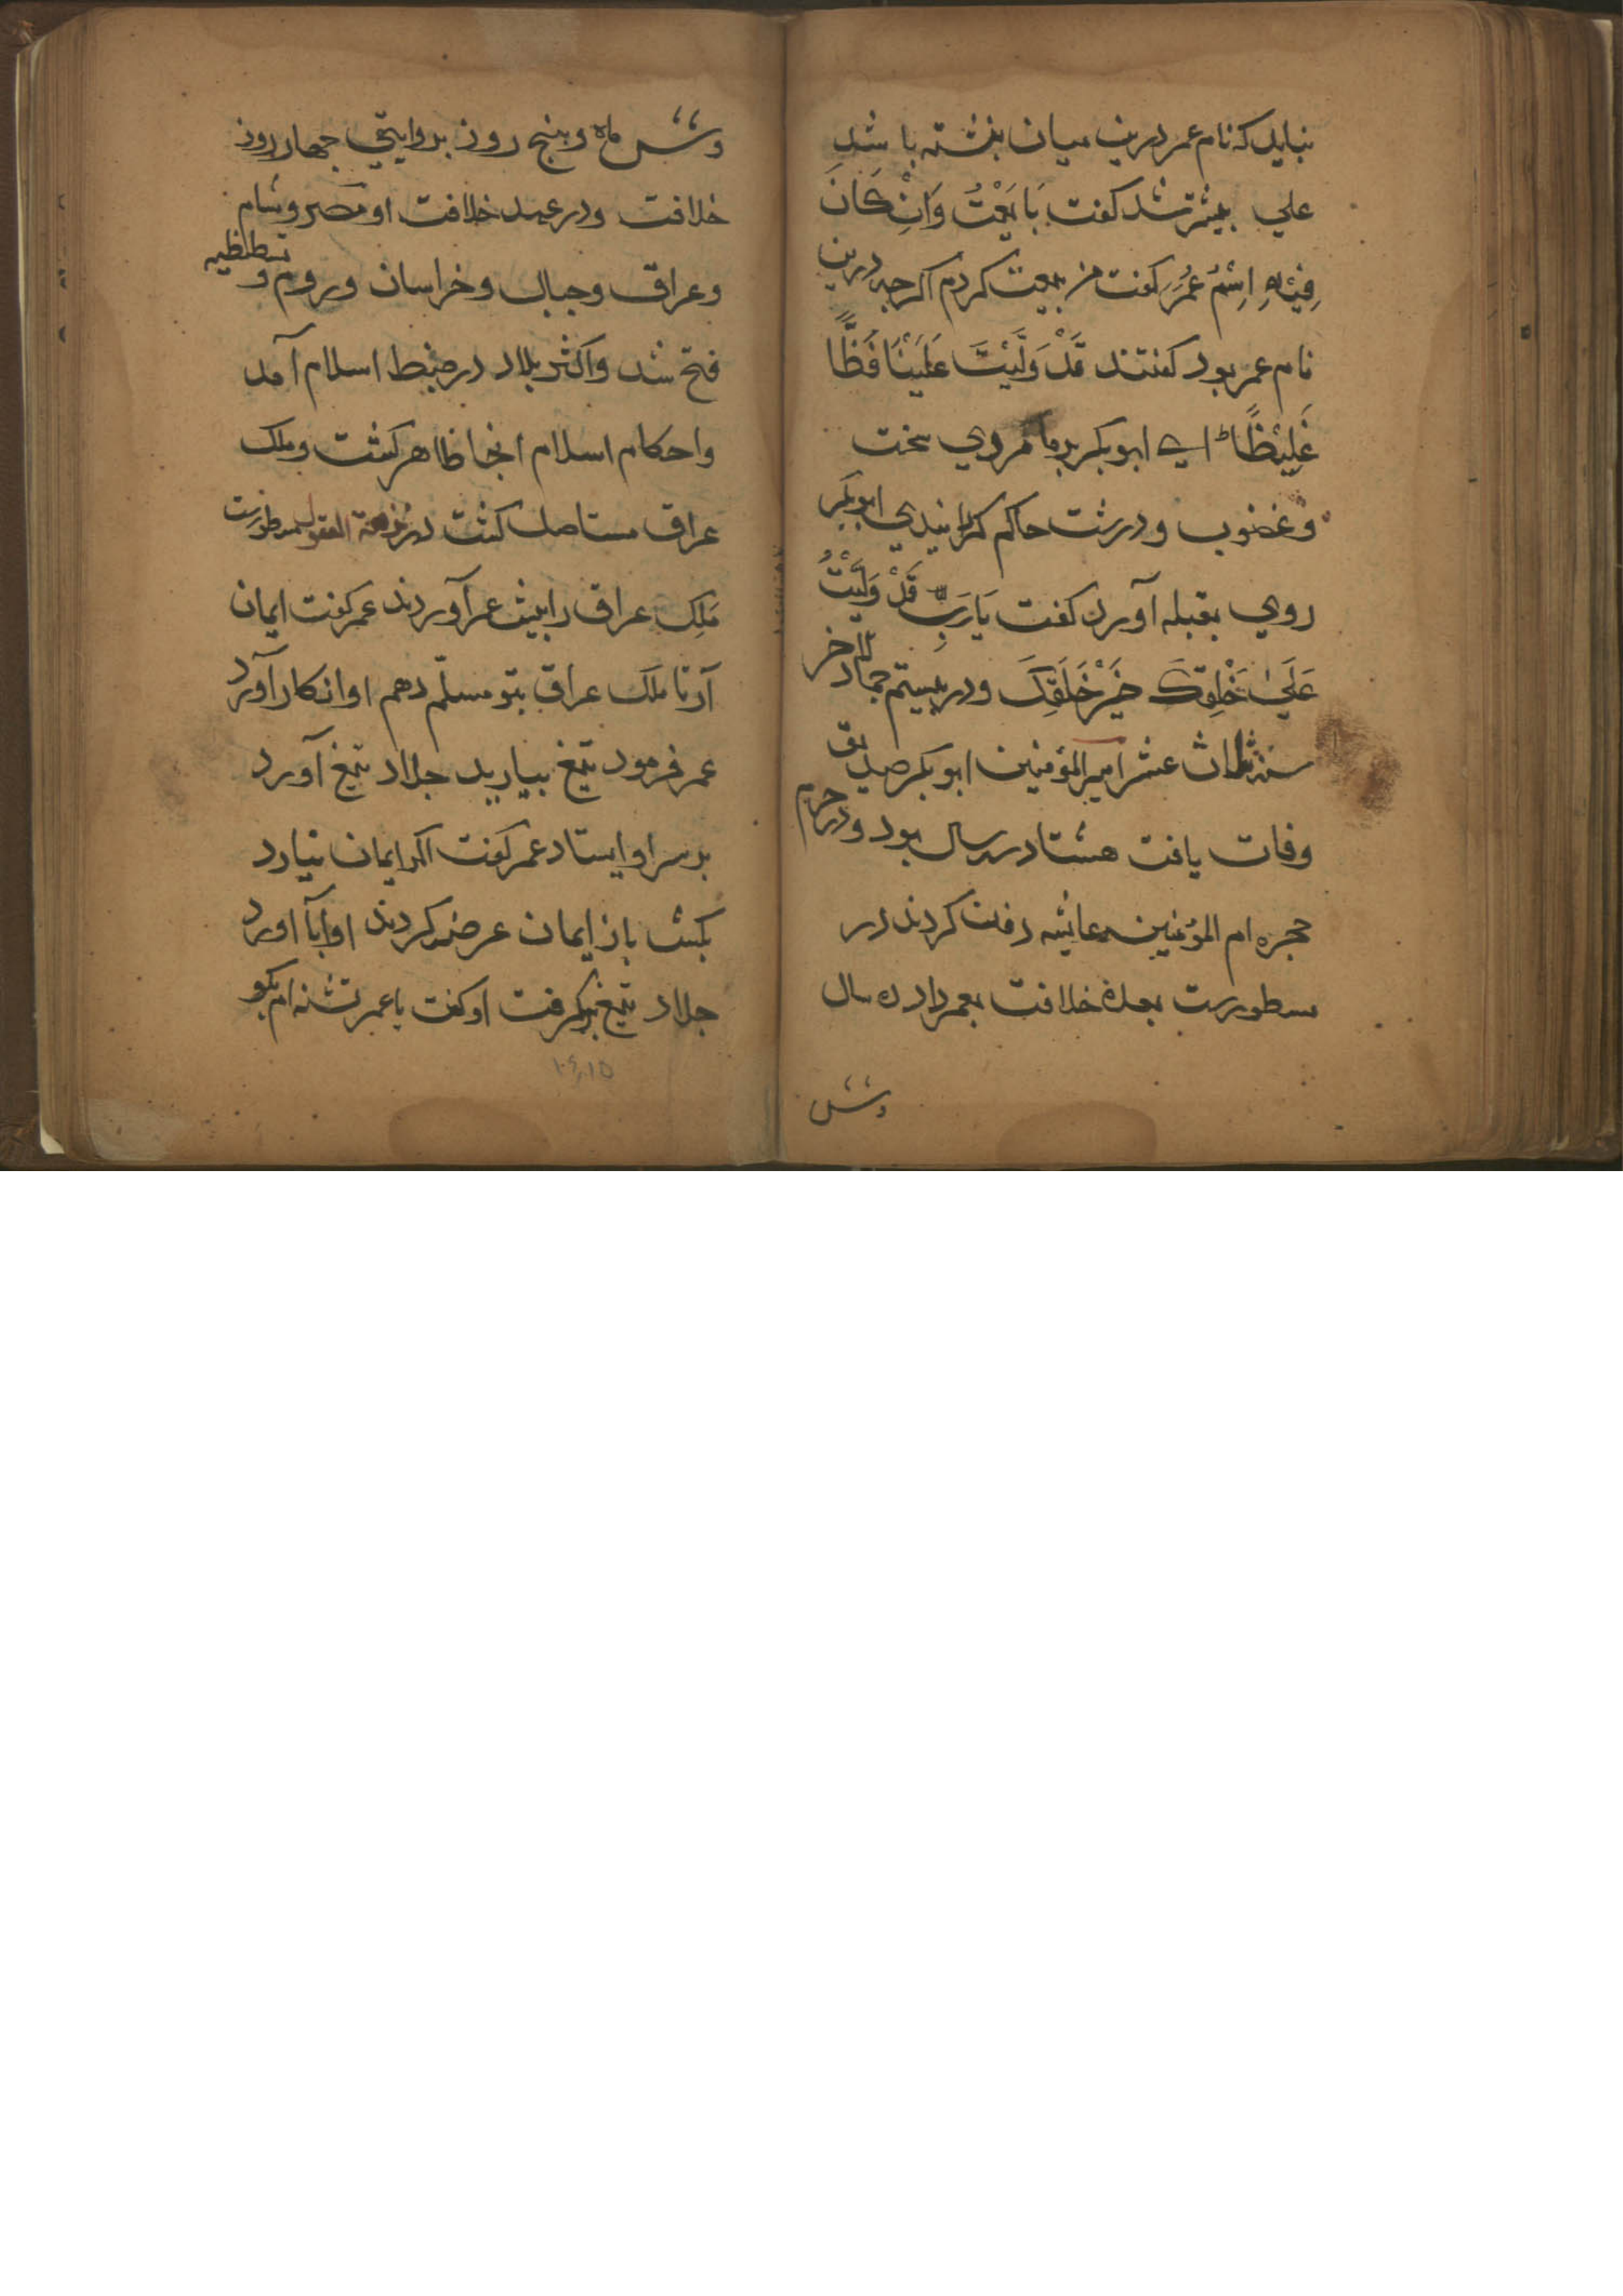 نباید که نام عمر درین میان نبشته باشد
علي بیشتر شد کفت بَایَعْتُ وَاِنْ کَانَ
فِیْهِ اِسْمُ عُمَرَ کفت من بیعت کردم اکرچه درین
نام عمر بود کفتند قَدْ وَلَّیْتَ عَلَیْنَا فَظًّا
غَلِیْظًا ای ابوبکر بر ما مردي سخت
و غضوب و درشت حاکم کردانیدي ابوبکر
روي بقبله آورد کفت یَا رَبِّ قَدْ وَلَّیْتُ
عَلَیٰ خَلْقِکَ خَیْرَ خَلْقِکَ و در بیستم جماد الاخر
سنه ثلاث عشر امیر المؤمنین ابوبکر صدیق
وفات یافت هشتاد سال بود و در حرم
حجره ام المؤمنین عایشه دفن کردند در
سطورست بعده خلافت بعمر داد ده سال
وشش
وشش ماه و پنج روز بروایتي چهار روز
خلافت و در عهد خلافت او مصر و شام
و عراق و جبال و خراسان و روم و قسطنطیه
فتح شد و اکثر بلاد در ضبط اسلام آمد
و احکام اسلام انجا ظاهر کشت و ملک
عراق مستاصل کشت در نزهة العقول مسطورست
مَلِک عراق را پیش عمر آوردند عمر کفت ایمان
آر تا ملک عراق بتو مسلّم دهم او انکار آورد
عمر فرمود تیغ بیارید جلاد تیغ آورد
بر سر او ایستاد عمر کفت اکر ایمان نیارد
بکش باز ایمان عرضه کردند او ابا اورد
جلاد تیغ برکرفت او کفت یا عمر تشنه ام بکو